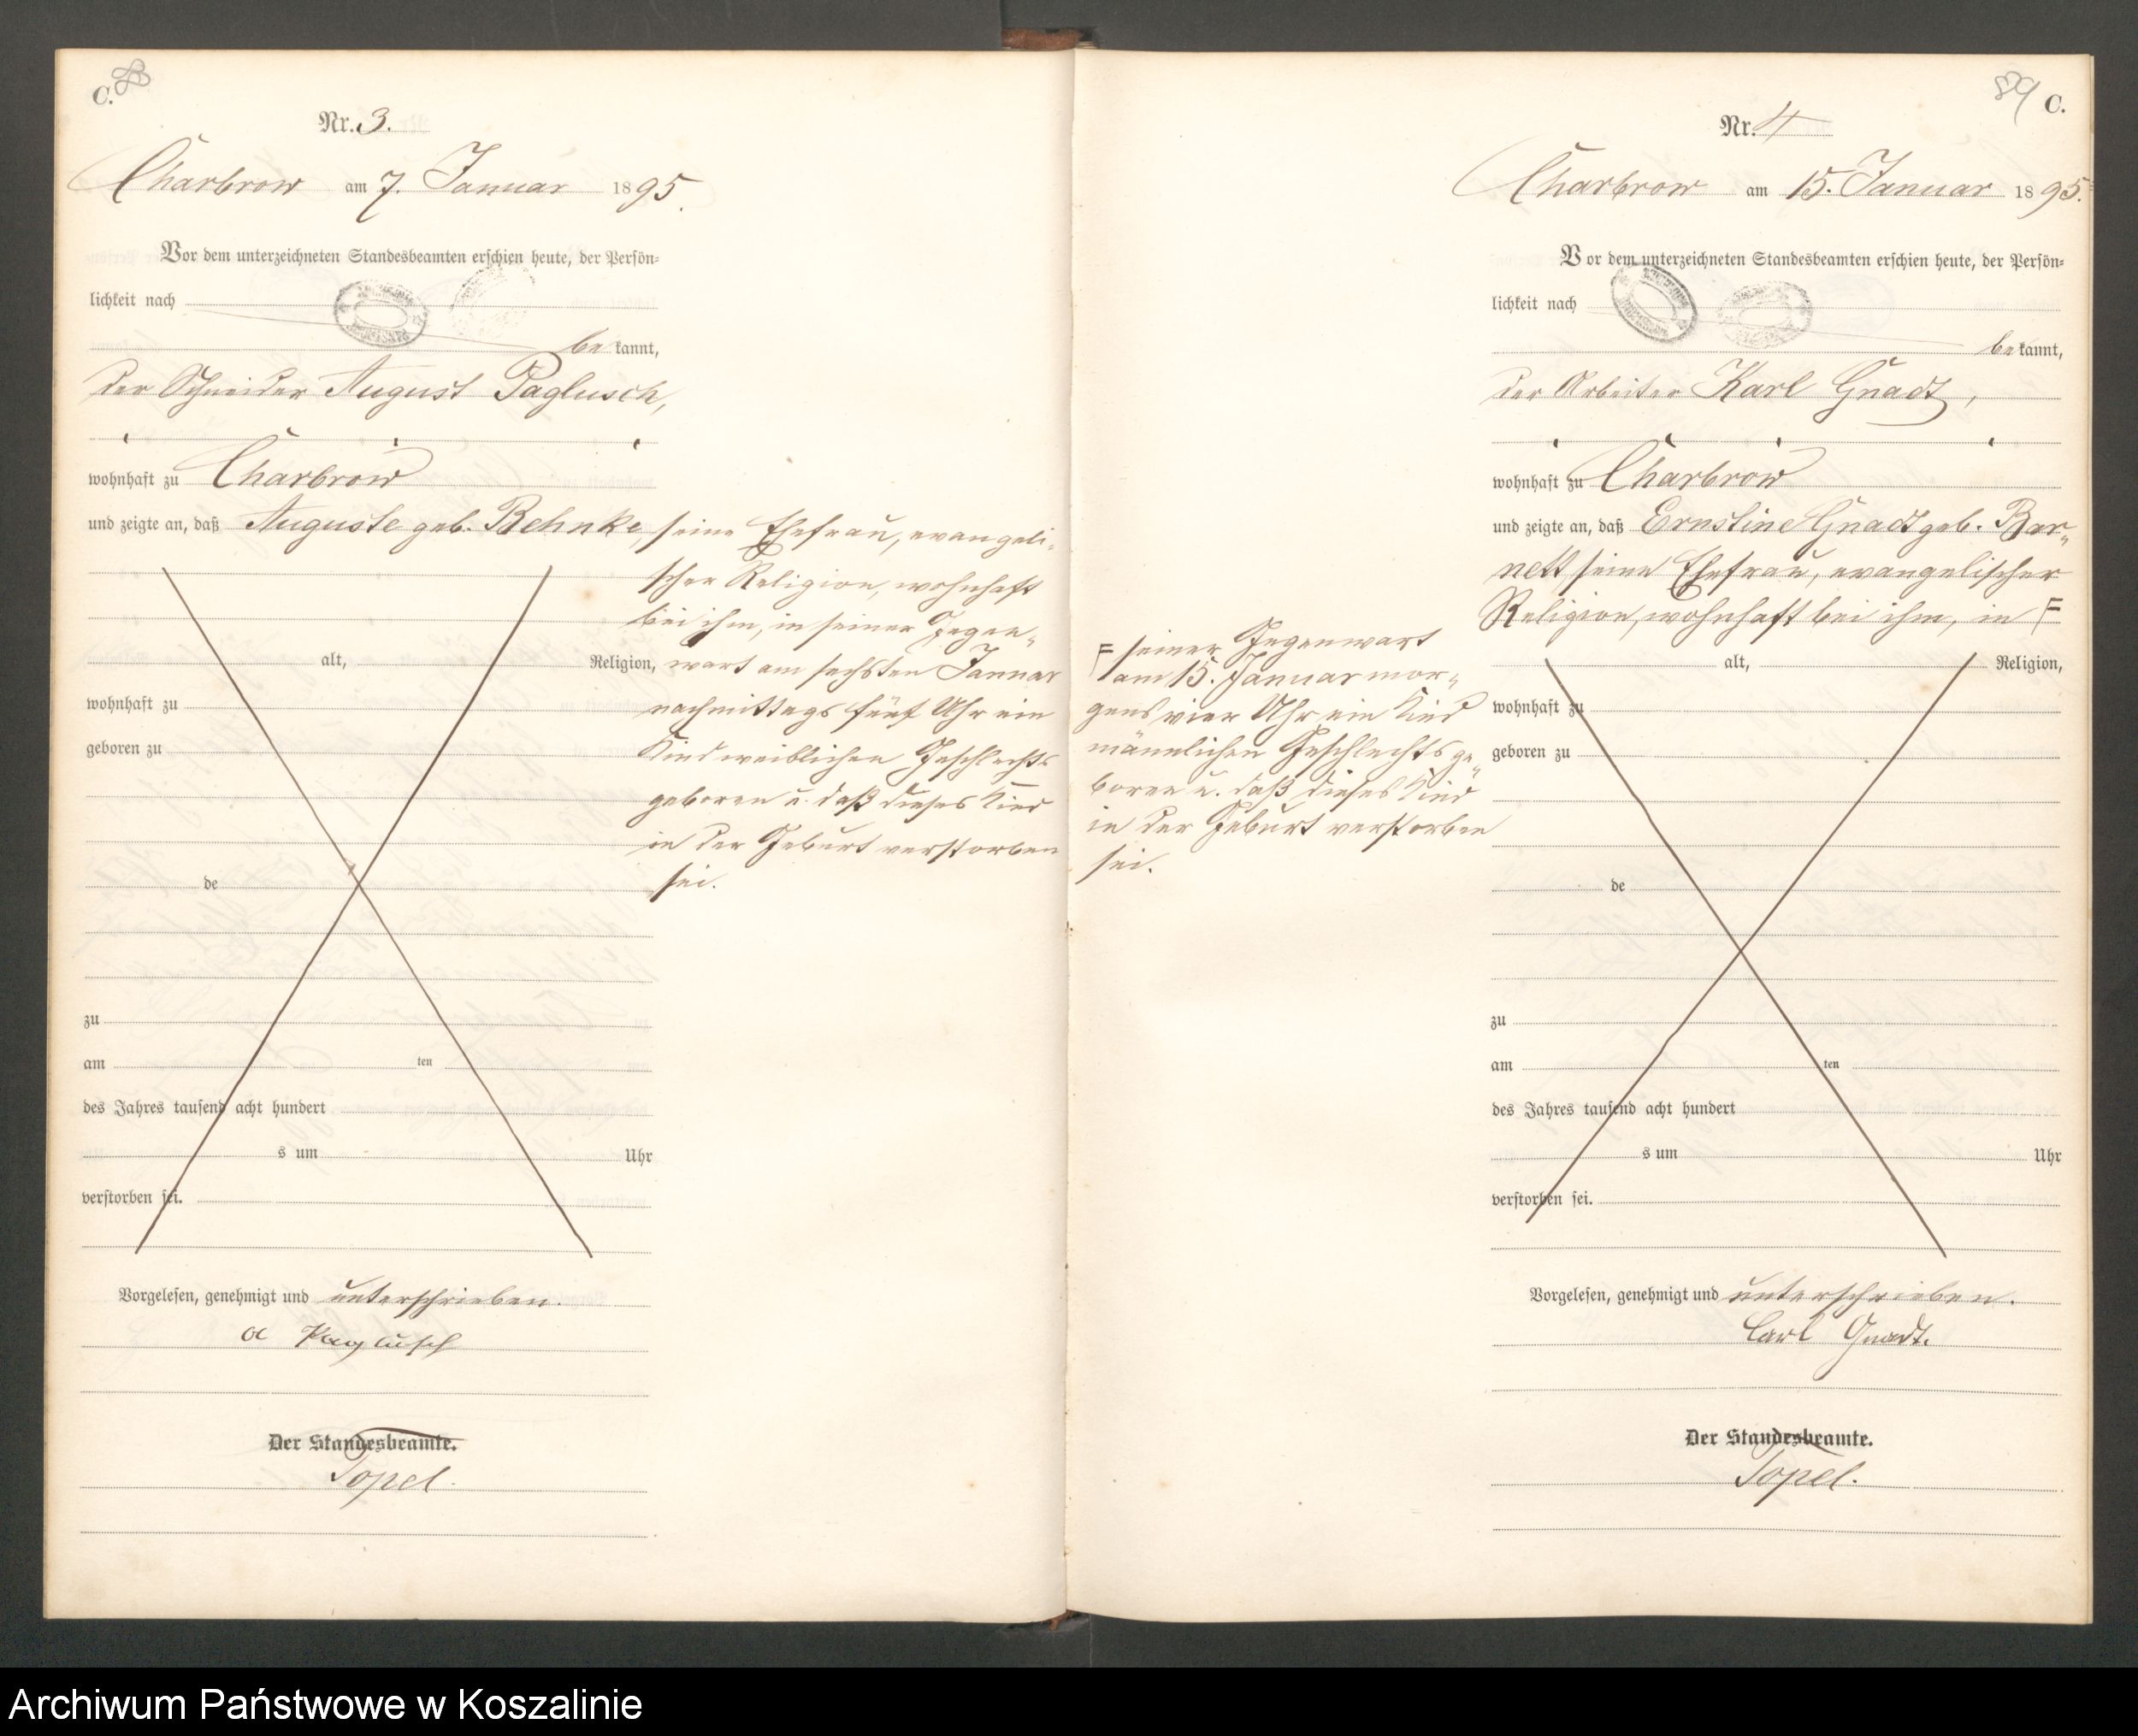 C. 88
Nr. 3.
Charbrow am 7. Januar 1895.
Vor dem unterzeichneten Standesbeamten erschien heute, der Persön-
lichkeit nach
bekannt,
der Schneider August Paglusch,
wohnhaft zu Charbrow
und zeigte an, daß Auguste geb. Behnke, seine Ehefrau, evangeli-
scher Religion, wohnhaft
bei ihm, in seiner Gegen-
alt, Religion, wart am sechsten Januar
wohnhaft zu nachmittags fünf Uhr ein
geboren zu Kind weiblichen Geschlechts
geboren u. daß dieses Kind
in der Geburt verstorben
de sei.
zu
am ten
des Jahres tausend acht hundert
s um Uhr
verstorben sei.
Vorgelesen, genehmigt und unterschrieben.
A Paglusch
Der Standesbeamte.
Topel.
89 C.
Nr. 4
Charbrow am 15. Januar 1895.
Vor dem unterzeichneten Standesbeamten erschien heute, der Persön-
lichkeit nach
bekannt,
der Arbeiter Karl Gnadt,
wohnhaft zu Charbrow
und zeigte an, daß Ernstine Gnadt geb. Bar-
nett seine Ehefrau, evangelischer
Religion, wohnhaft bei ihm, in F
F seiner Gegenwart
am 15. Januar mor-
gens vier Uhr ein Kind
männlichen Geschlechts ge-
boren u. daß dieses Kind
in der Geburt verstorben
sei.
alt, Religion,
wohnhaft zu
geboren zu
de
zu
am ten
des Jahres tausend acht hundert
s um Uhr
verstorben sei.
Vorgelesen, genehmigt und unterschrieben.
Carl Gnadt.
Der Standesbeamte.
Topel.
Archiwum Państwowe w Koszalinie